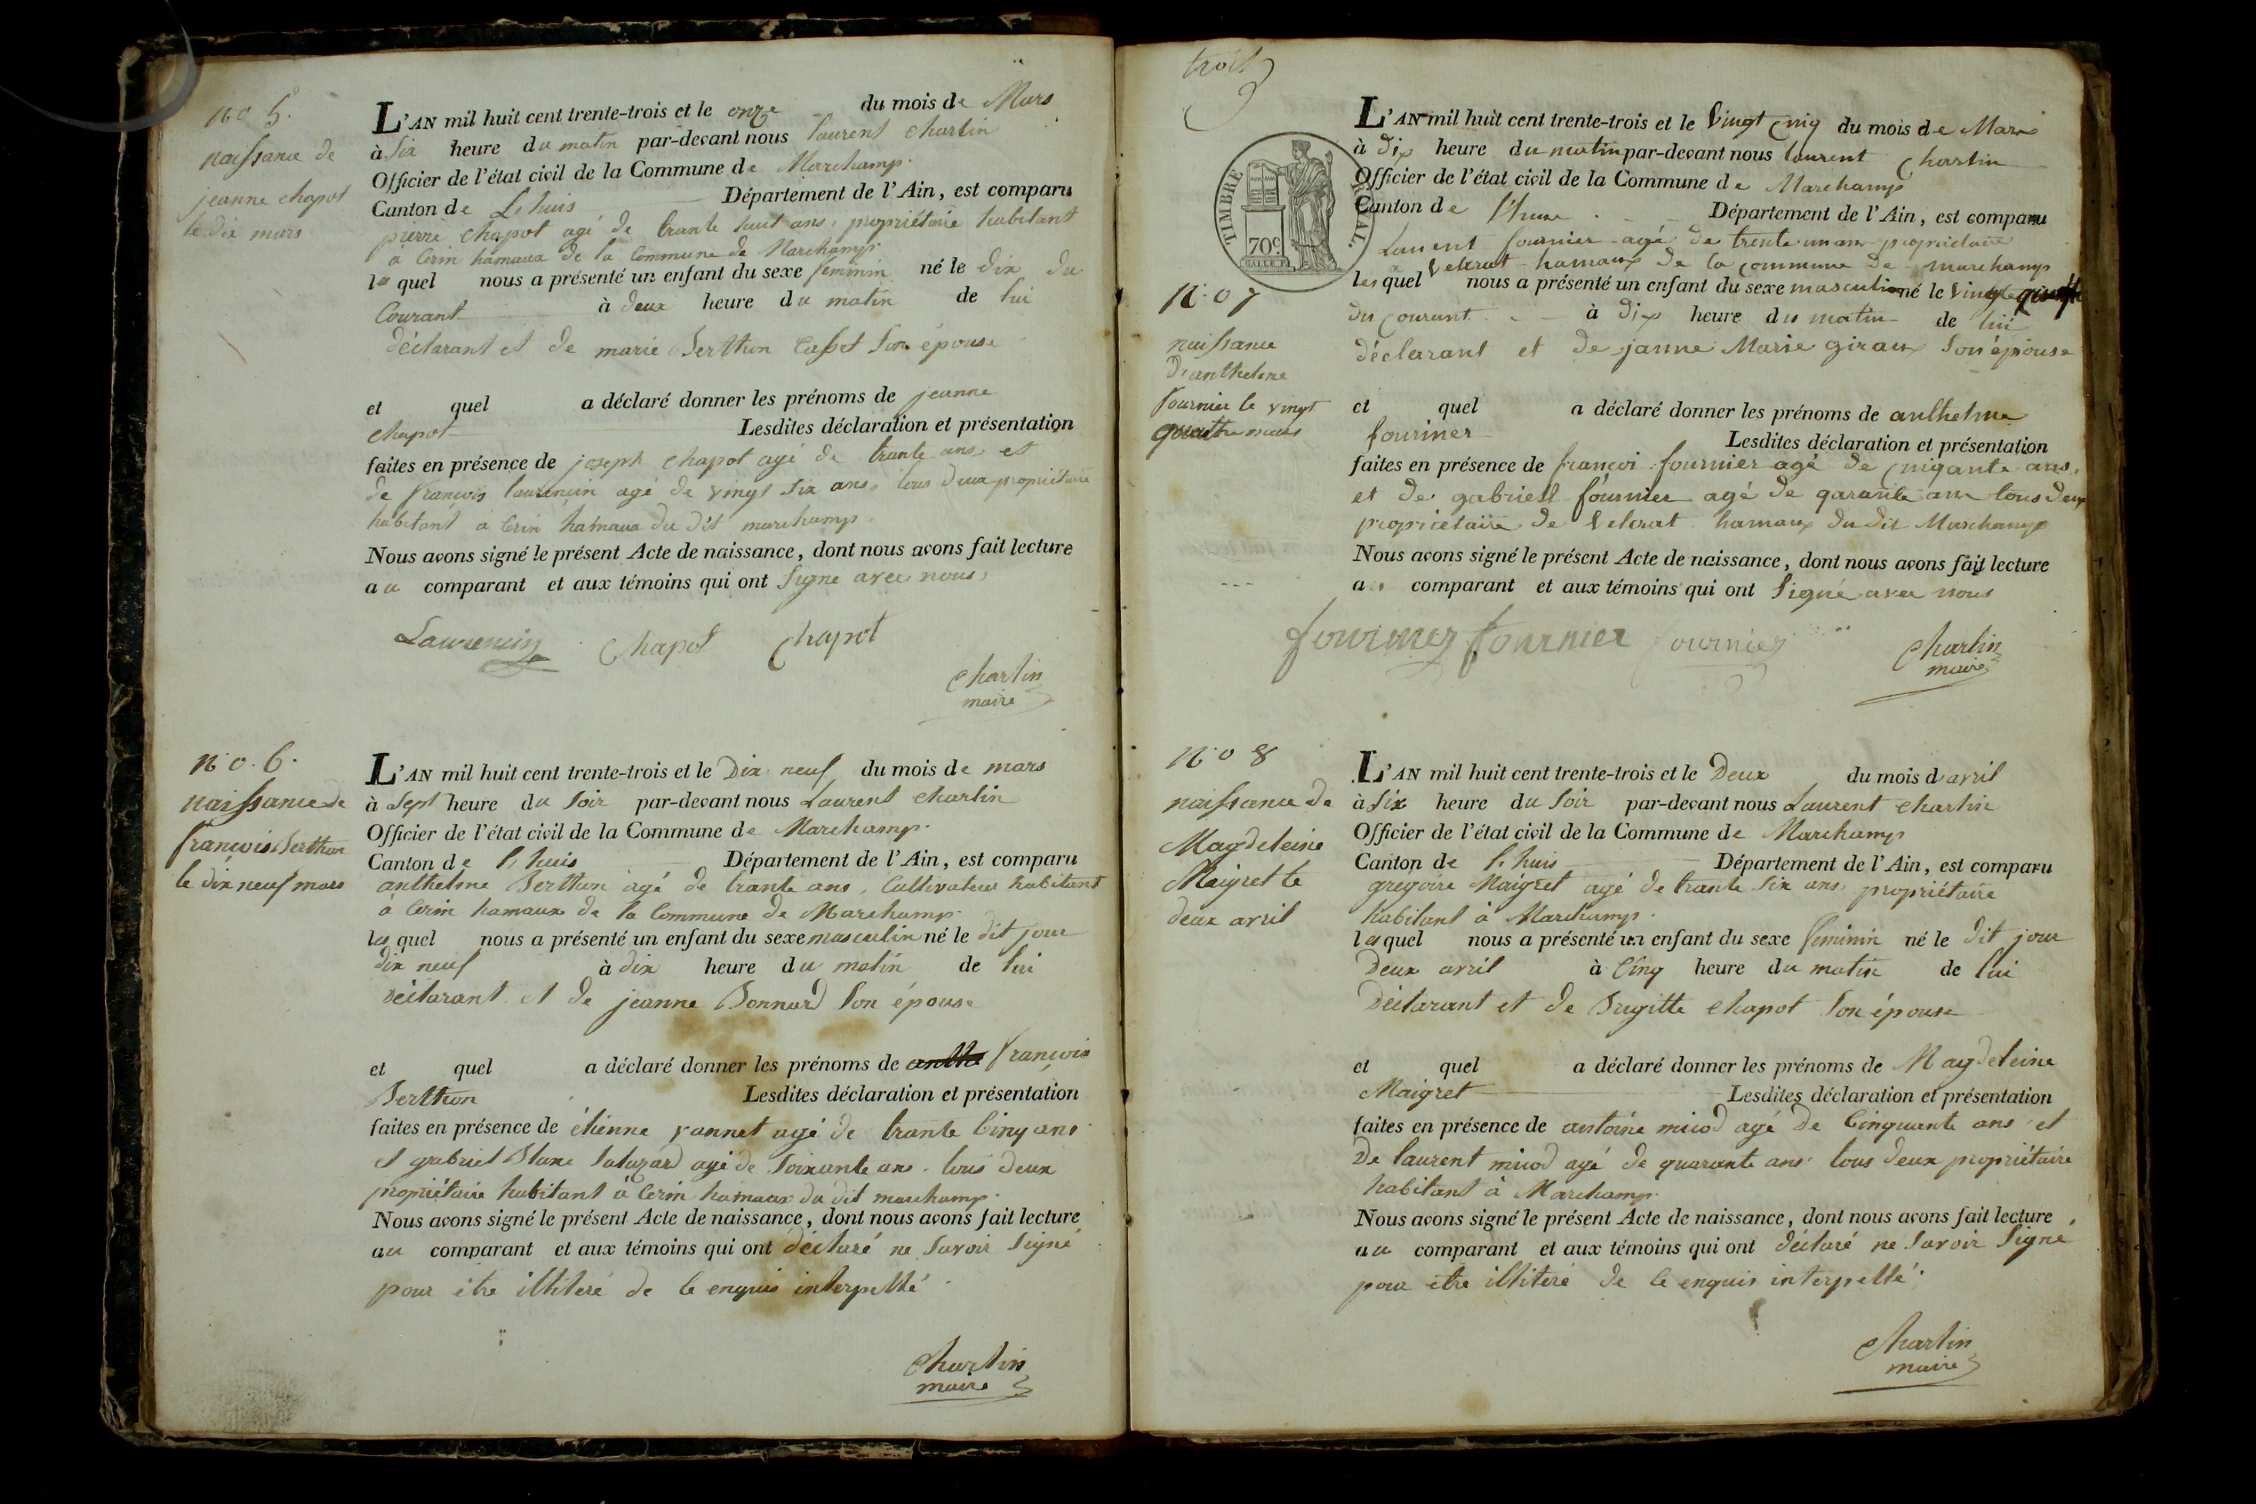 no 5.
naissance de
jeanne chapot
le dix mars
L'AN mil huit cent trente-trois et le onze du mois de Mars
à Six heure du matin par-devant nous laurent charlin
Officier de l'état civil de la Commune de Marchamp.
Canton de L'huis Département de l'Ain, est comparu
pierre chapot agé de trante huit ans, propriétaire habitant
à Cerin hamaux de la Commune de Marchamp.
le quel nous a présenté un enfant du sexe feminin né le dix du
Courant à deux heure du matin de lui
déclarant et de marie Berthon Casset Son épouse
et quel a déclaré donner les prénoms de jeanne
chapot Lesdites déclaration et présentation
faites en présence de joseph chapot agé de trante ans et
de françois laurencin agé de vingt six ans, tous deux propriétaire
habitant à Cerin hamaux du dit marchamp.
Nous avons signé le présent Acte de naissance, dont nous avons fait lecture
au comparant et aux témoins qui ont Signe avec nous,
Laurencin chapot chapot
charlin
maire
no. 6.
naissance de
francois Berthon
le dix neuf mars
L'AN mil huit cent trente-trois et le Dix neuf du mois de mars
à Sept heure du Soir par-devant nous Laurent charlin
Officier de l'état civil de la Commune de Marchamp.
Canton de l'huis Département de l'Ain, est comparu
anthelme Berthon agé de trante ans, Cultivateur habitant
à Cerin hamaux de la Commune de Marchamp.
le quel nous a présenté un enfant du sexe masculin né le dit jour
dix neuf à dix heure du matin de lui
déclarant et de jeanne Bonnard Son épouse
et quel a déclaré donner les prénoms de françois
Berthon Lesdites déclaration et présentation
faites en présence de étienne vannet agé de trante Cinq ans
et gabriel Blanc Saluzard agé de Soixante ans. tous deux
propriétaire habitant à Cerin hamaux du dit marchamp.
Nous avons signé le présent Acte de naissance, dont nous avons fait lecture
au comparant et aux témoins qui ont déclaré ne Savoir Signé
pour être illiteré de Ce enquis interpellé.
Charlin
maire
trois
TIMBRE ROYAL.
70c.
no 7
naissance
D'anthelme
fournier le vingt
quatre mars
L'AN mil huit cent trente-trois et le Vingt cinq du mois de Mars
à Dix heure du matin par-devant nous laurent Charlin
Officier de l'état civil de la Commune de Marchamp
Canton de l'huis Département de l'Ain, est comparu
Laurent fournier agé de trente un ans propriétaire
Velerat hamaux de la commune de marchamp
lequel nous a présenté un enfant du sexe masculin né le vingt
du courant à Dix heure du matin de lui
déclarant et de janne Marie giraux Son épouse
et quel a déclaré donner les prénoms de anthelme
fouriner Lesdites déclaration et présentation
faites en présence de françoi fournier agé de cinqante ans,
et de gabriell fournier agé de qarante ans tous deux
propriétaire de Velerat hamaux du dit Marchamp
Nous avons signé le présent Acte de naissance, dont nous avons fait lecture
au comparant et aux témoins qui ont Signé avec nous
fournier fournier fournier
Charlin
maire
no 8
naissance de
Magdeleine
Maigret le
deux avril
L'AN mil huit cent trente-trois et le Deux du mois d avril
à Six heure du Soir par-devant nous Laurent charlin
Officier de l'état civil de la Commune de Marchamp
Canton de l'huis Département de l'Ain, est comparu
gregoire Maigret agé de trante Six ans, propriétaire
habitant à Marchamp.
le quel nous a présenté un enfant du sexe feminin né le dit jour
Deux avril à Cinq heure du matin de lui
Déclarant et de Brigitte chapot Son épouse
et quel a déclaré donner les prénoms de Magdeleine
Maigret Lesdites déclaration et présentation
faites en présence de antoine micod agé de Cinquante ans et
De laurent micod agé de quarante ans tous deux propriétaire
habitant à Marchamp.
Nous avons signé le présent Acte de naissance, dont nous avons fait lecture
au comparant et aux témoins qui ont déclaré ne Savoir Signé
pour être illiteré de Ce enquis interpellé.
Charlin
maire